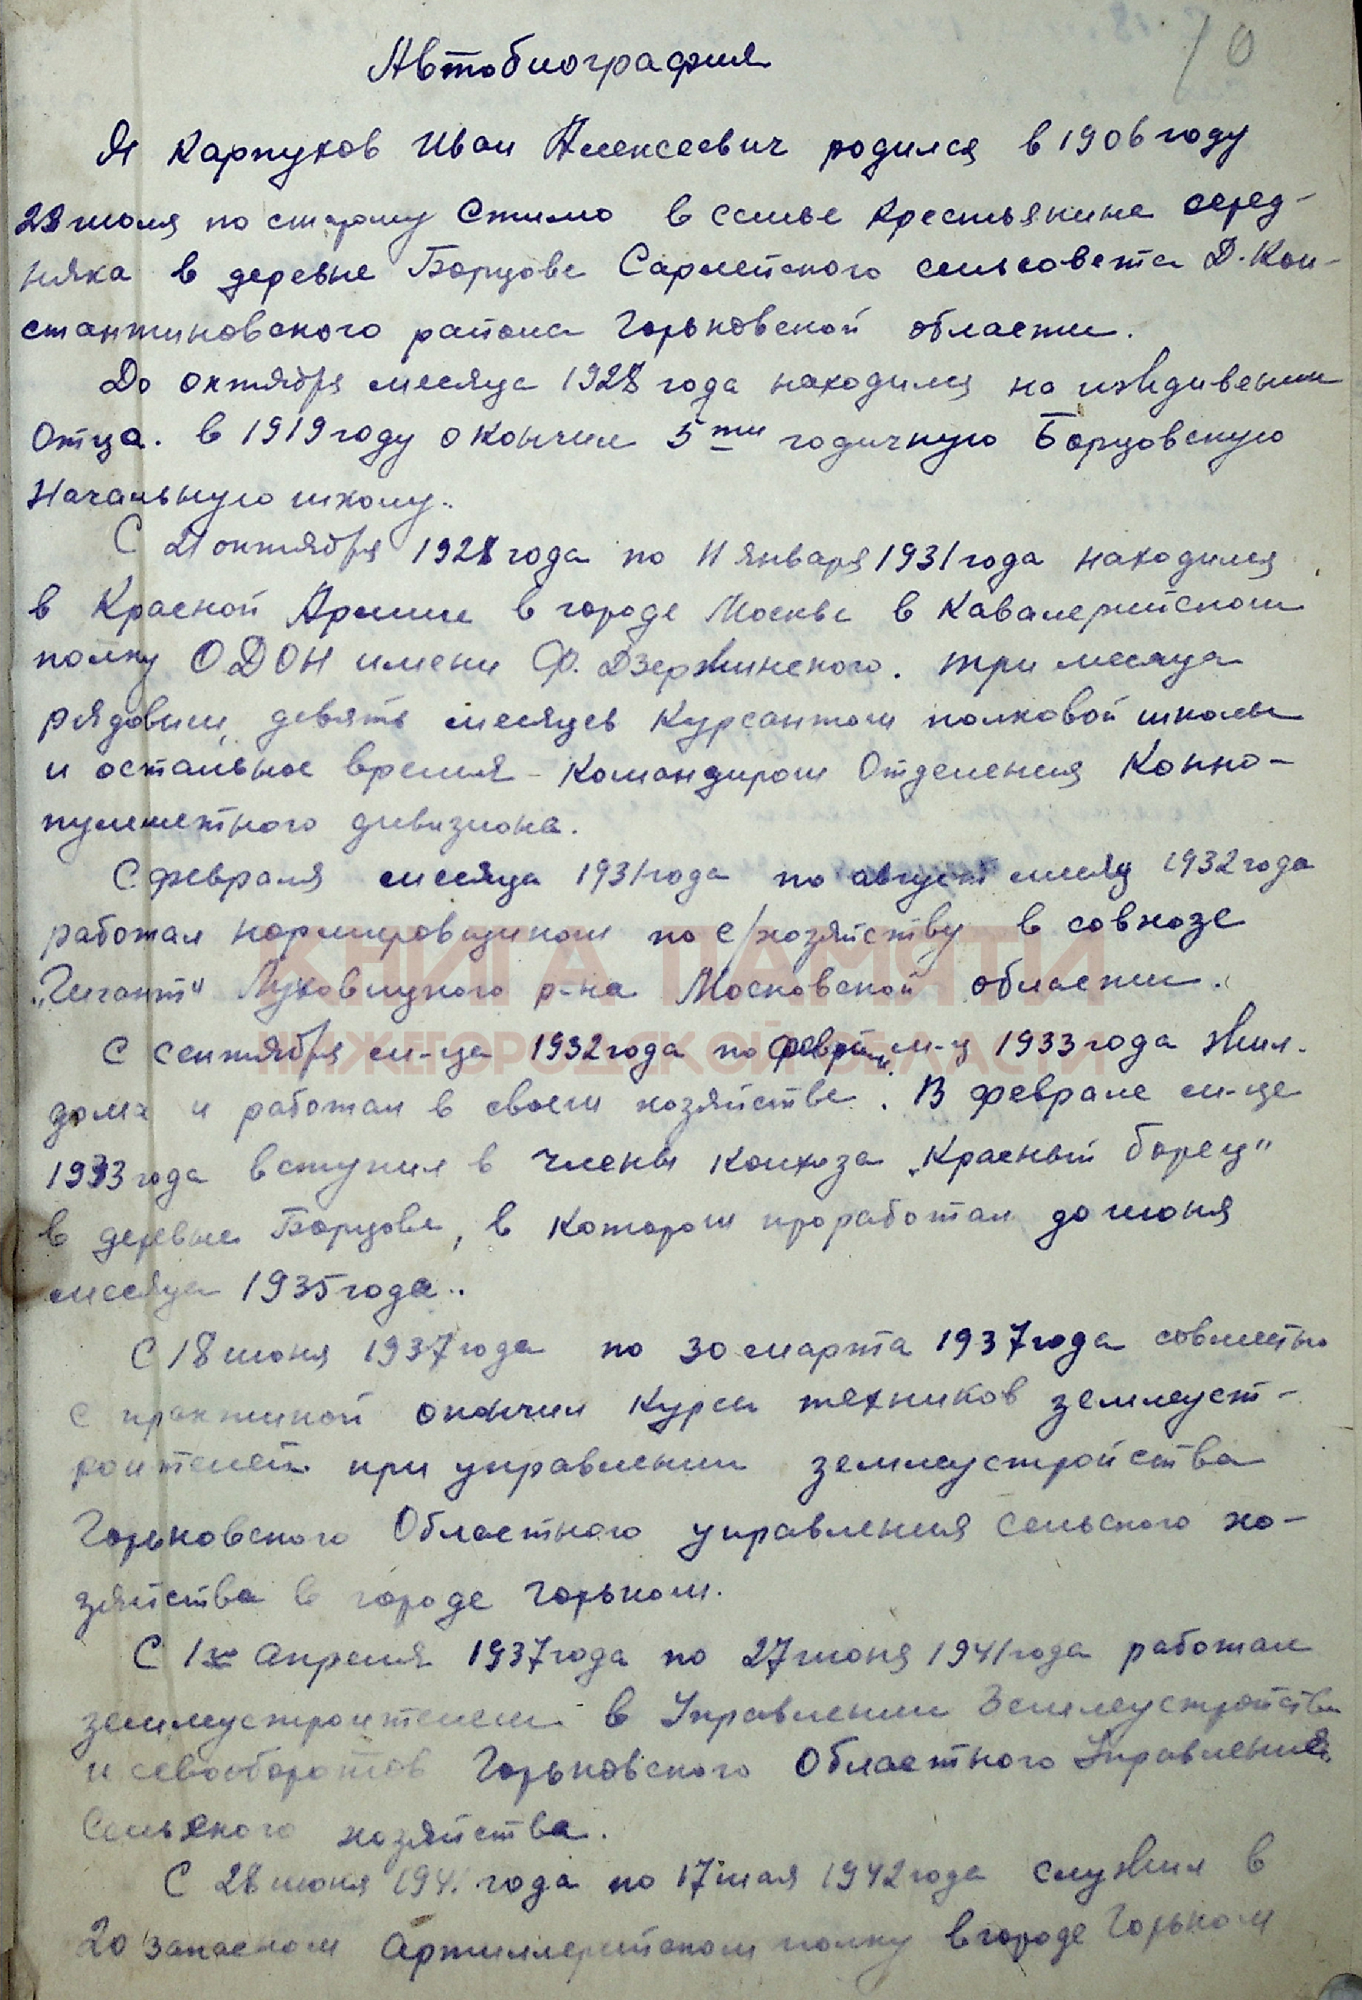 10
Автобиография
Я Карпухов Иван Алексеевич родился в 1906 году
28 июля по старому стилю в семье крестьянина серед-
няка в деревне Борцове Сарлейского сельсовета Д. Кон-
стантиновского района Горьковской области.
До октября месяца 1928 года находился на иждивении
отца. в 1919 году окончил 5ти годичную Борцовскую
начальную школу.
С 21 октября 1928 года по 11 января 1931 года находился
в Красной Армии в городе Москве в Кавалерийском
полку ОДОН имени Ф. Дзержинского. три месяца
рядовым, девять месяцев курсантом полковой школы
и остальное время - командиром отделения Конно-
пулеметного дивизиона.
С февраля месяца 1931 года по август месяц 1932 года
работал нормировщиком по с/хозяйству в совхозе
„Гигант" Луховицкого р-на Московской области.
С сентября м-ца 1932 года по февраль м-ц 1933 года жил
дома и работал в своем хозяйстве. В феврале м-це
1933 года вступил в члены колхоза „Красный борец"
в деревне Борцове, в котором проработал до июня
месяца 1935 года..
С 18 июня 1937 года по 30 марта 1937 года совместно
с практикой окончил курсы техников землеуст-
роителей при управлении землеустройства
Горьковского Областного управления сельского хо-
зяйства в городе Горьком.
С 1го апреля 1937 года по 27 июня 1941 года работал
землеустроителем в Управлении Землеустройства
и севооборотов Горьковского Областного Управления
Сельского хозяйства.
С 28 июня 194. года по 17 мая 1942 года служил в
20 запасном артиллерийском полку в городе Горьком
КНИГА ПАМЯТИ
НИЖЕГОРОДСКОЙ ОБЛАСТИ